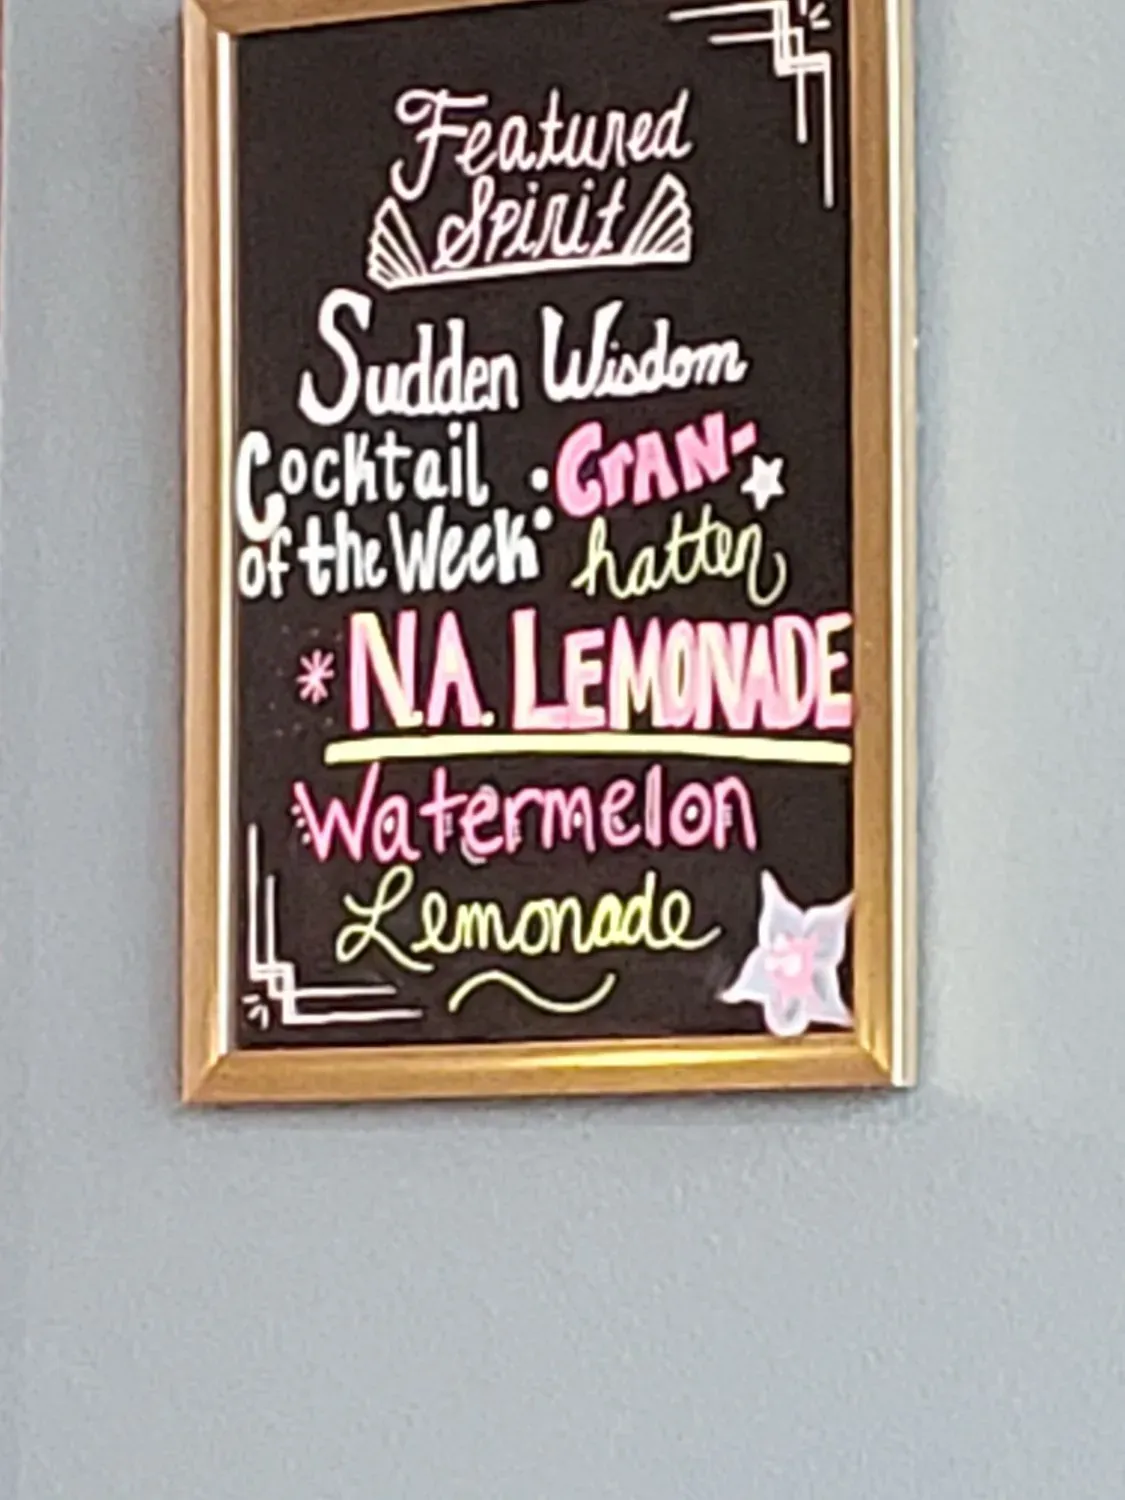 Featured
Spirit
Sudden Wisdom
Cocktail : CrAN-
of the Week hatten
* N.A. LEMONADE
Watermelon
Lemonade